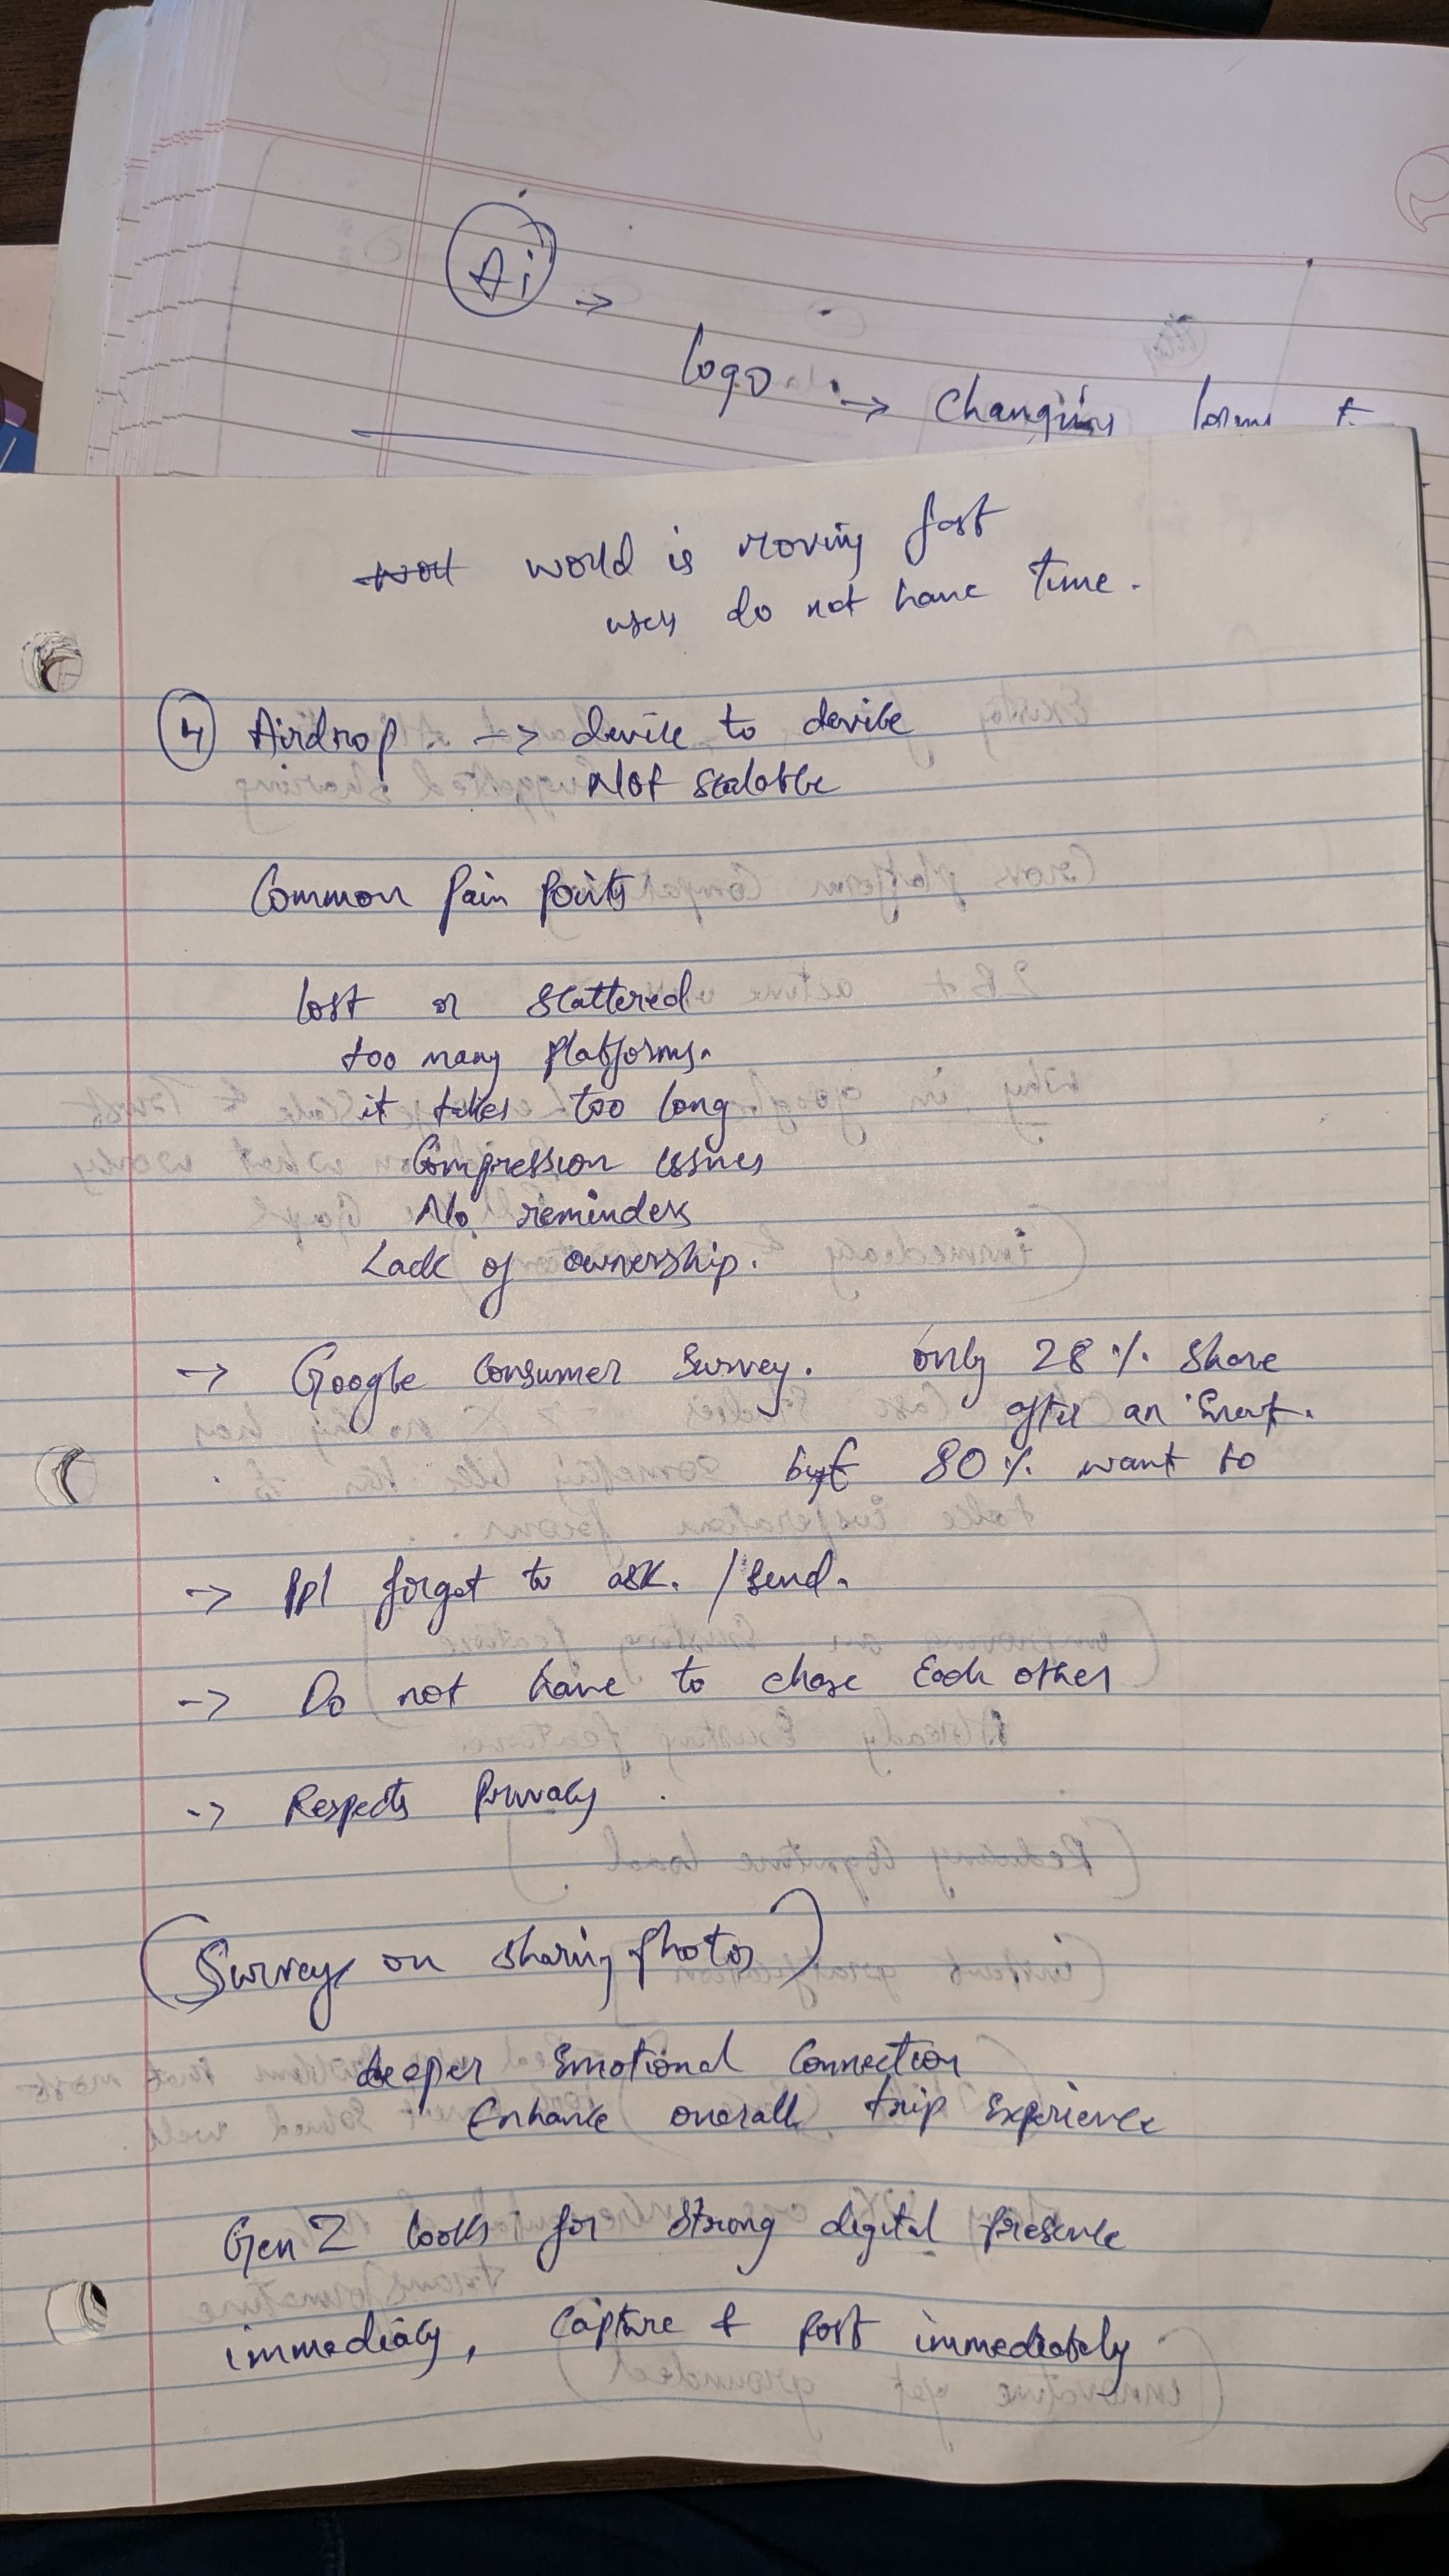 Ai →
logo → changing forms t
world is moving fast
users do not have time.
4 Airdrop. -> device to device
Not scalable
Common Pain Points
lost or scattered
too many platforms.
it takes too long
Compression issues
No reminders
Lack of ownership.
→ Google Consumer Survey. only 28% share
after an Event.
but 80% want to
-> ppl forget to ask. / send.
-> Do not have to chase Each other
-> Respects Privacy.
(Survey on sharing photos)
deeper Emotional Connection
Enhance overall trip Experience
Gen Z looks for strong digital presence
immediacy, Capture & post immediately